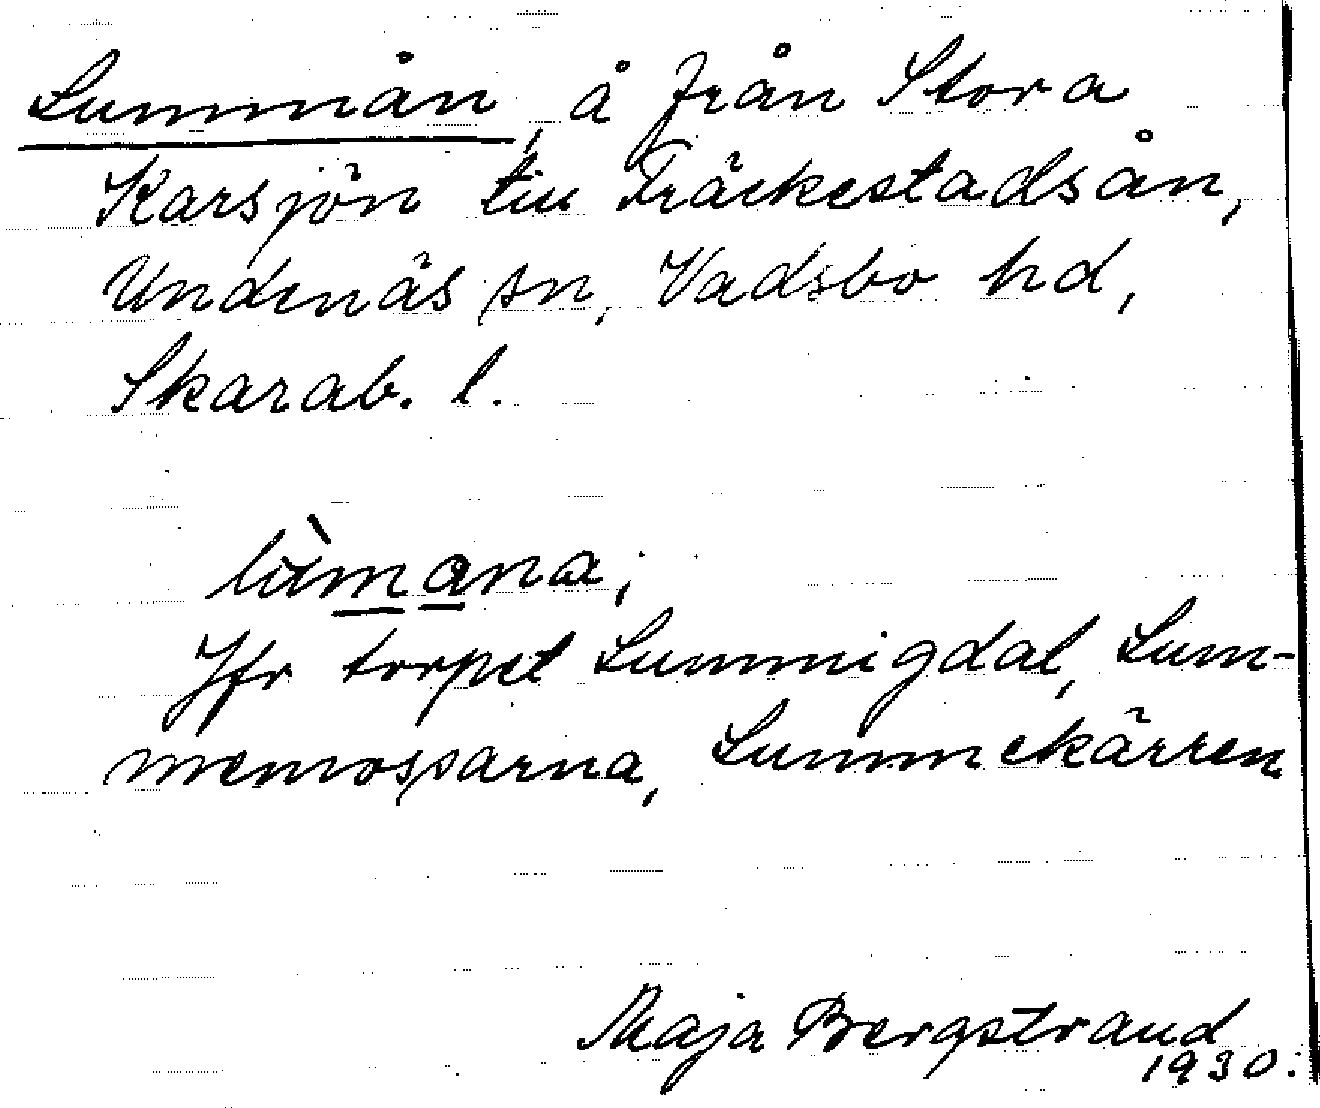 Lummån, å från Stora
Karsjön till Fräckestadsån,
Undenäs sn, Vadsbo hd,
Skarab. l.
Jfr torpet Lummigdal, Lum-
memossarna, Lummekärren
Maja Bergstrand
1930.